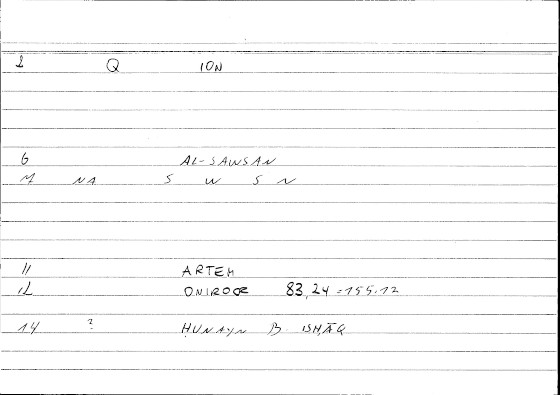 1 Q ION
6 AL-SAWSAN
M NA S W S N
11 ARTEM
12 ONIROCR 83,24 = 155.12
14 ? ḤUNAYN B. ISḤĀQ